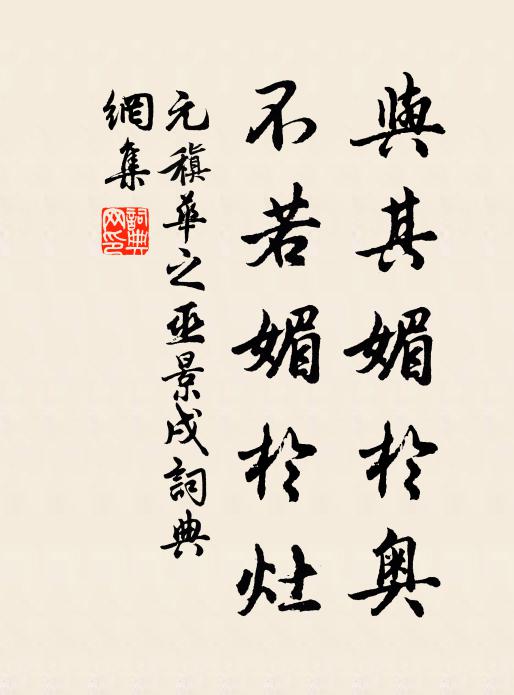 與其媚於奧
不若媚於灶
元稹華之巫景戌詞典
網集
詞典網印